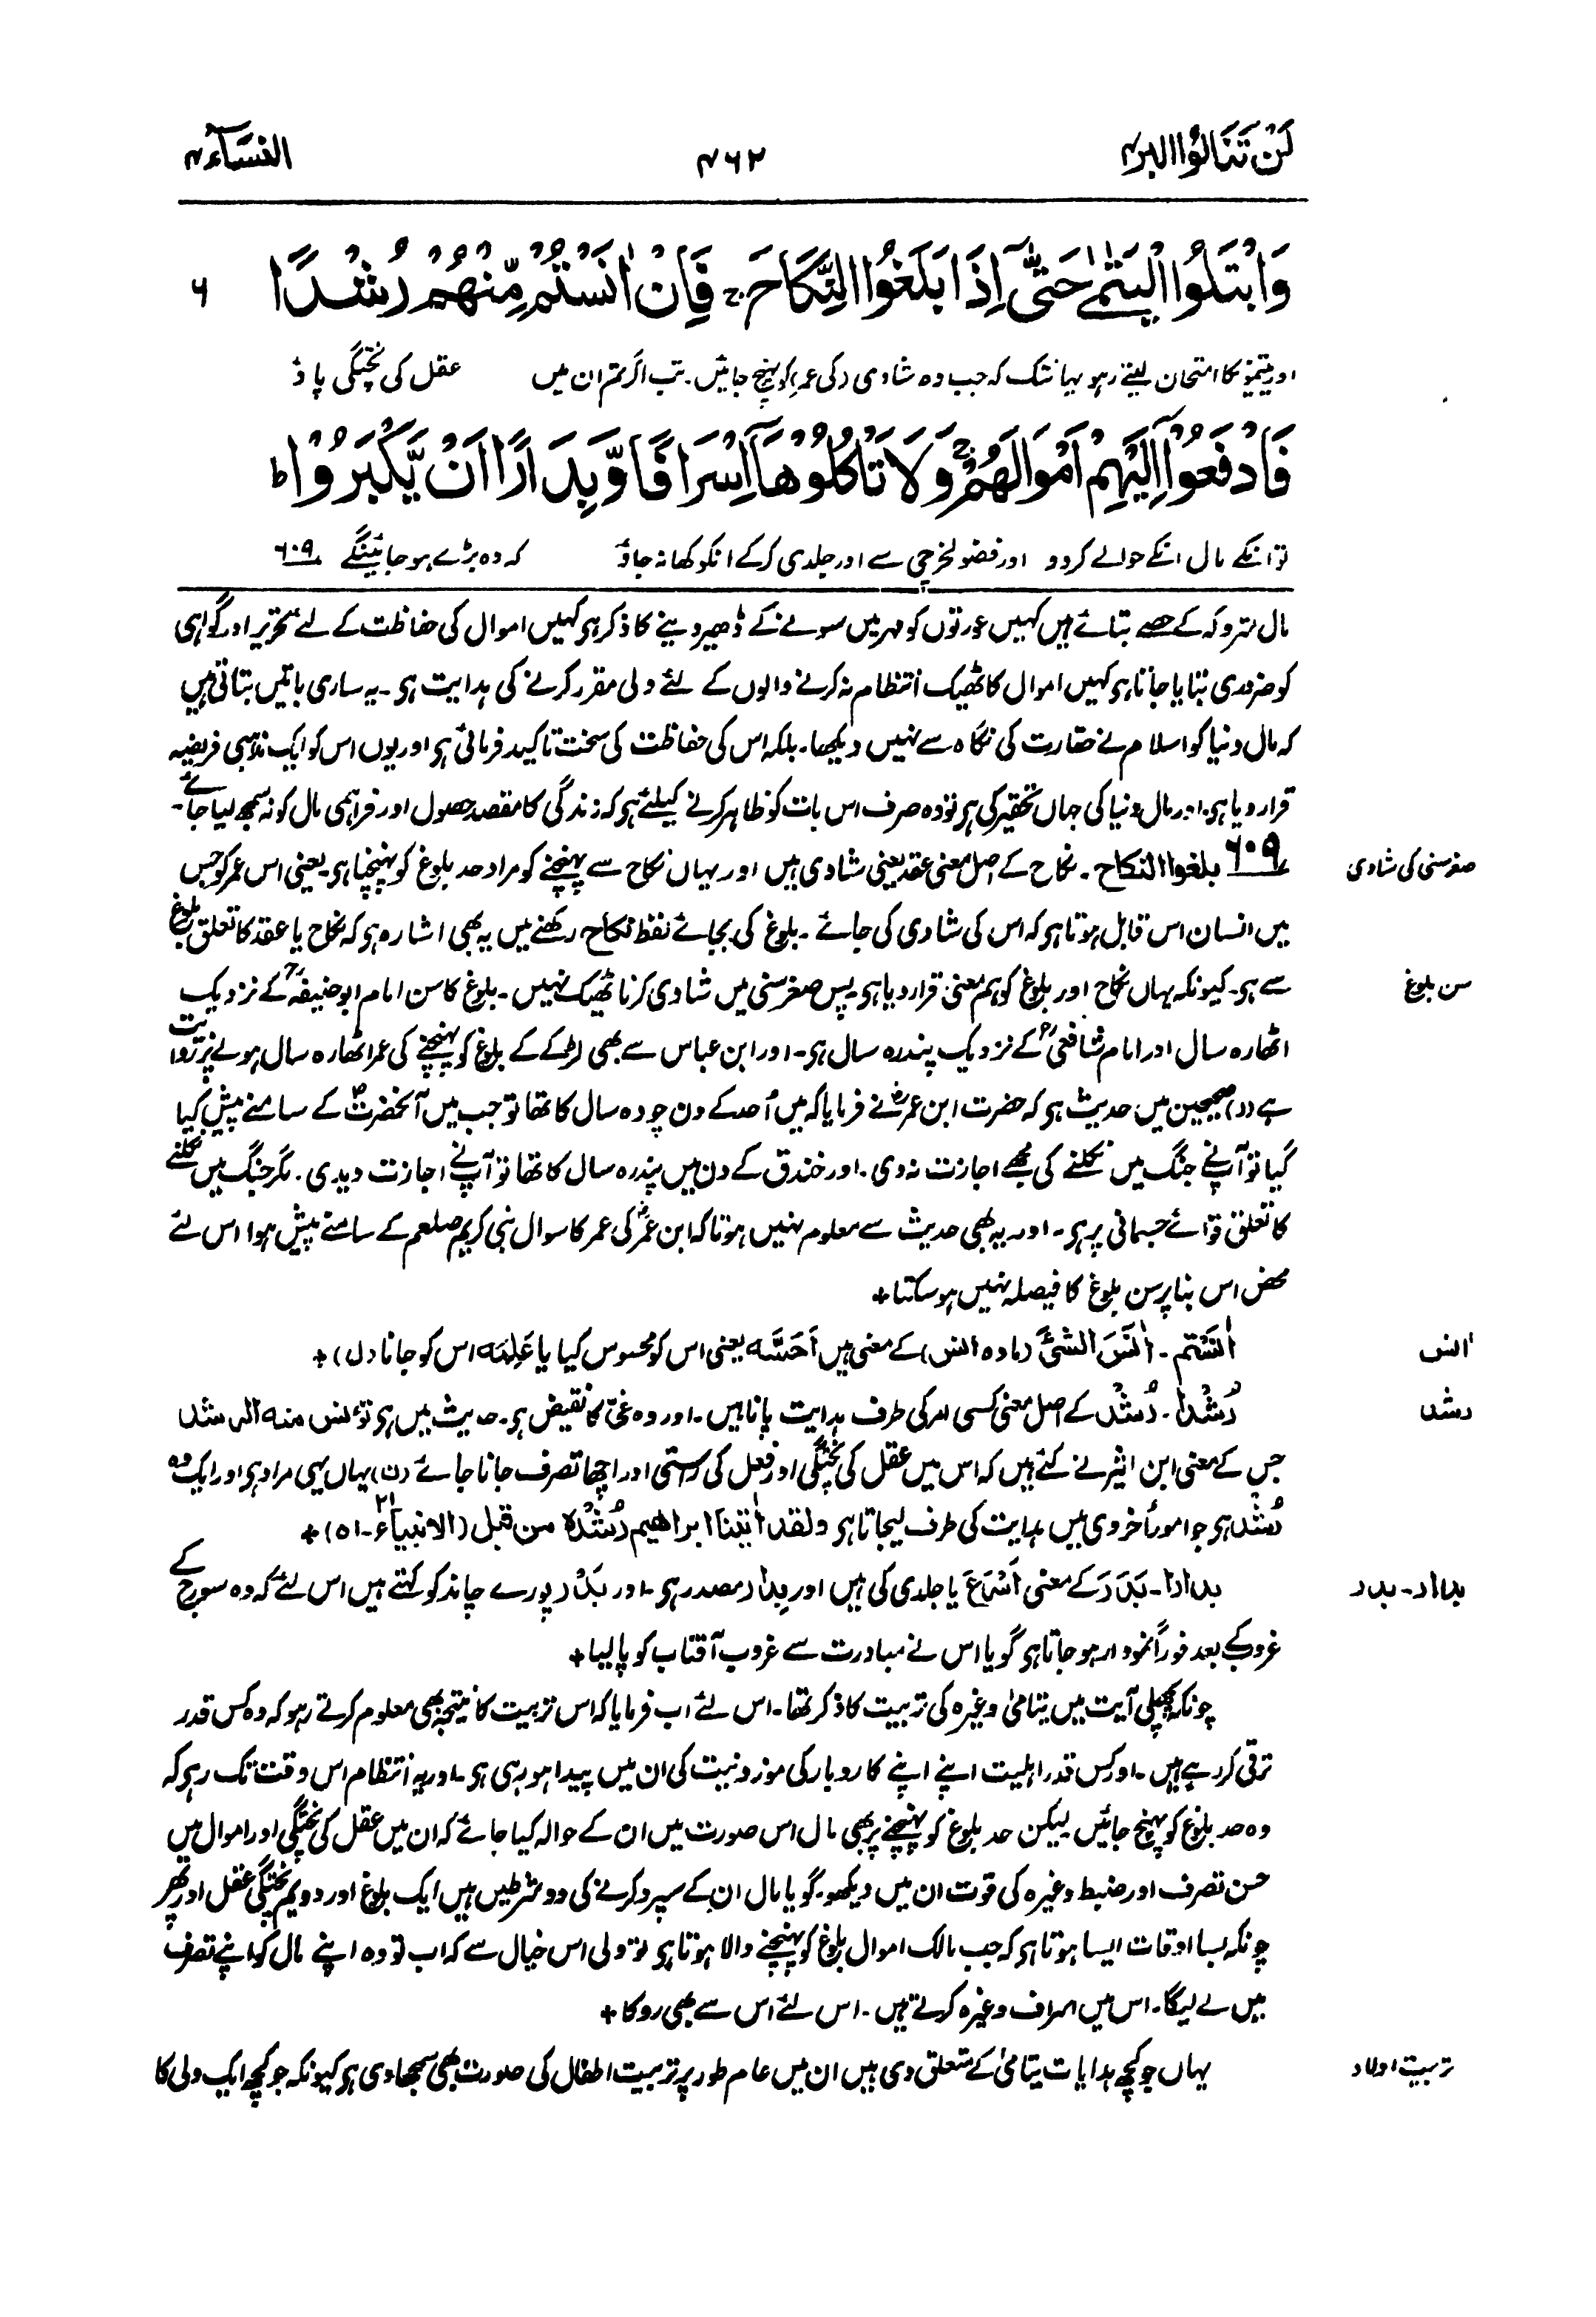 لن تنالوا البر ۴
۴۶۲
النساء ۴
وَابْتَلُوا الْيَتٰمٰى حَتّٰىٓ اِذَا بَلَغُوا النِّكَاحَ ۚ فَاِنْ اٰنَسْتُمْ مِّنْهُمْ رُشْدًا
۶
اور یتیموں کا امتحان لیتے رہو یہانتک کہ جب وہ شادی (کی عمر) کو پہنچ جائیں۔ تب اگر تم ان میں عقل کی پختگی پاؤ
فَادْفَعُوْٓا اِلَيْهِمْ اَمْوَالَهُمْ ۚ وَلَا تَاْكُلُوْهَآ اِسْرَافًا وَّبِدَارًا اَنْ يَّكْبَرُوْا ؕ
تو انکے مال انکے حوالے کردو اور فضولخرچی سے اور جلدی کرکے انکو کھا نہ جاؤ کہ وہ بڑے ہو جائینگے ۶۰۹
مال متروکہ کے حصے بتائے ہیں کہیں عورتوں کو مہر میں سونے کے ڈھیر دینے کا ذکر ہی کہیں اموال کی حفاظت کے لئے تحریر اور گواہی
کو ضروری بتایا جاتا ہی کہیں اموال کا ٹھیک انتظام نہ کرنے والوں کے لئے ولی مقرر کرنے کی ہدایت ہی۔ یہ ساری باتیں بتاتی ہیں
کہ مال دنیا کو اسلام نے حقارت کی نگاہ سے نہیں دیکھا۔ بلکہ اس کی حفاظت کی سخت تاکید فرمائی ہی اور یوں اس کو ایک مذہبی فریضہ
قرار دیا ہی۔ اور مال دنیا کی جہاں تحقیر کی ہی تو وہ صرف اس بات کو ظاہر کرنے کیلئے ہی کہ زندگی کا مقصد حصول اور فراہمی مال کو نہ سمجھ لیا جائے۔
۶۰۹ بلغوا النکاح۔ نکاح کے اصل معنی عقد یعنی شادی ہیں اور یہاں نکاح سے پہنچنے کو مراد حد بلوغ کو پہنچنا ہی۔ یعنی اس عمر کو جس
صغر سنی کی شادی
میں انسان اس قابل ہوتا ہی کہ اس کی شادی کی جائے۔ بلوغ کی بجائے لفظ نکاح رکھنے میں یہ بھی اشارہ ہی کہ نکاح یا عقد کا تعلق بلوغ
سے ہی۔ کیونکہ یہاں نکاح اور بلوغ کو ہم معنی قرار دیا ہی۔ پس صغر سنی میں شادی کرنا ٹھیک نہیں۔ بلوغ کا سن امام ابو حنیفہؒ کے نزدیک
سن بلوغ
اٹھارہ سال اور امام شافعیؒ کے نزدیک پندرہ سال ہی۔ اور ابن عباس سے بھی لڑکے کے بلوغ کو پہنچنے کی عمر اٹھارہ سال ہونے پر روایت
ہے (د) صحیحین میں حدیث ہی کہ حضرت ابن عمرؓ نے فرمایا کہ میں اُحد کے دن چودہ سال کا تھا تو جب میں آنحضرتؐ کے سامنے پیش کیا
گیا تو آپنے جنگ میں نکلنے کی مجھے اجازت نہ دی۔ اور خندق کے دن میں پندرہ سال کا تھا تو آپنے اجازت دیدی۔ مگر جنگ میں نکلنے
کا تعلق قوائے جسمانی پر ہی۔ اور یہ بھی حدیث سے معلوم نہیں ہوتا کہ ابن عمرؓ کی عمر کا سوال نبی کریم صلعم کے سامنے پیش ہوا اس لئے
محض اس بنا پر سن بلوغ کا فیصلہ نہیں ہوسکتا ÷
اٰنستم۔ اٰنَسَ الشَّیَٔ (مادہ انس) کے معنی ہیں اَحَسَّہ یعنی اس کو محسوس کیا یا عَلِمَہ اس کو جانا (ل) ÷
انس
رُشْدًا۔ رُشْد کے اصل معنی کسی امر کی طرف ہدایت پانا ہیں۔ اور وہ غیّ کا نقیض ہی۔ حدیث میں ہی تؤنس منہ الرشد
رشد
جس کے معنی ابن اثیر نے کئے ہیں کہ اس میں عقل کی پختگی اور فعل کی راستی اور اچھا تصرف جانا جائے (ن) یہاں یہی مراد ہی اور ایک وہ
رُشْد ہی جو امور اُخروی میں ہدایت کی طرف لیجاتا ہی ولقد اٰتینا ابراھیم رُشْدَہ من قبل (الانبیاء ۲۱-۵۱) ÷
بدارا۔ بَدَرَ کے معنی اَسْرَعَ یا جلدی کی ہیں اور بِدار مصدر ہی۔ اور بَدْر پورے چاند کو کہتے ہیں اس لئے کہ وہ سورج کے
بدار۔ بدر
غروب کے بعد فوراً نمودار ہو جاتا ہی گویا اس نے مبادرت سے غروب آفتاب کو پالیا ÷
چونکہ پچھلی آیت میں یتامیٰ وغیرہ کی تربیت کا ذکر تھا۔ اس لئے اب فرمایا کہ اس تربیت کا نتیجہ بھی معلوم کرتے رہو کہ وہ کس قدر
ترقی کر رہے ہیں۔ اور کس قدر اہلیت اپنے اپنے کاروبار کی موزونیت کی ان میں پیدا ہو رہی ہی۔ اور یہ انتظام اس وقت تک رہے کہ
وہ حد بلوغ کو پہنچ جائیں لیکن حد بلوغ کو پہنچنے پر بھی مال اس صورت میں ان کے حوالہ کیا جائے کہ ان میں عقل کی پختگی اور اموال میں
حسن تصرف اور ضبط وغیرہ کی قوت ان میں دیکھو۔ گویا مال ان کے سپرد کرنے کی دو شرطیں ہیں ایک بلوغ اور دویم پختگی عقل اور پھر
چونکہ بسا اوقات ایسا ہوتا ہی کہ جب مالک اموال بلوغ کو پہنچنے والا ہوتا ہی تو ولی اس خیال سے کہ اب تو وہ اپنے مال کو اپنے تصرف
میں لے لیگا۔ اس میں اسراف وغیرہ کرتے ہیں۔ اس لئے اس سے بھی روکا ÷
یہاں جو کچھ ہدایات یتامیٰ کے متعلق دی ہیں ان میں عام طور پر تربیت اطفال کی صورت بھی سمجھا دی ہی کیونکہ جو کچھ ایک ولی کا
تربیت اولاد